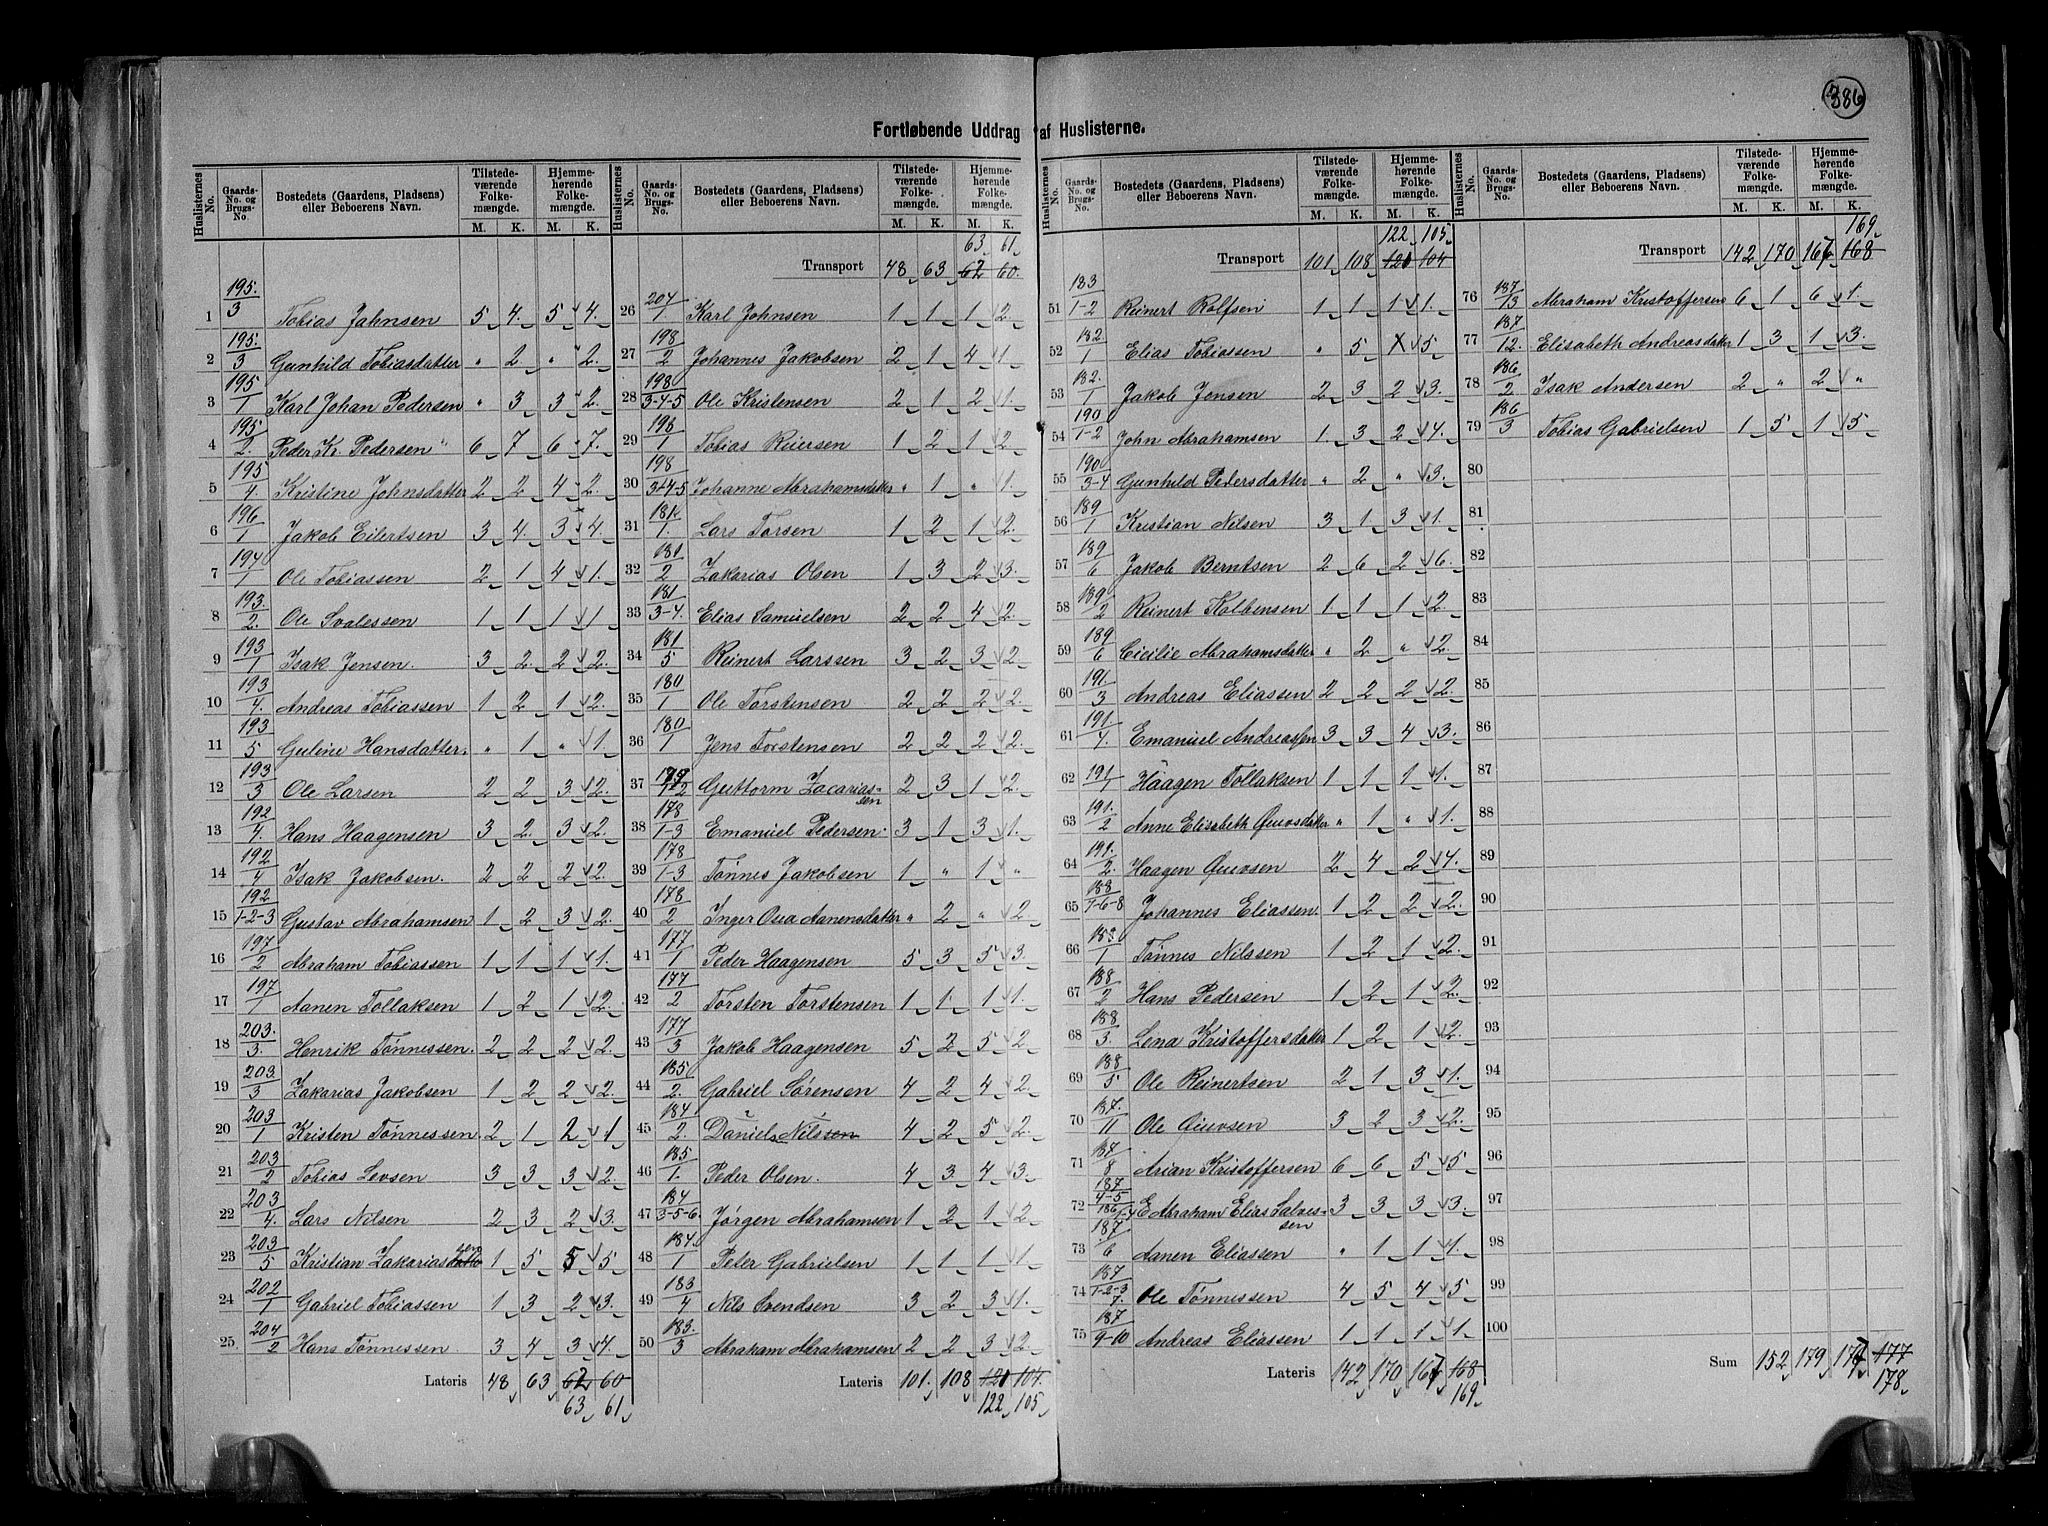 386
Fortløbende Uddrag af Huslisterne.
Huslisternes No. Gaards-No. og Brugs-No. Bostedets (Gaardens, Pladsens) eller Beboerens Navn. Tilstedeværende Folkemængde. M. K. Hjemmehørende Folkemængde. M. K.
1 195/3 Tobias Jahnsen 5 4 5 4
2 195/3 Gunhild Tobiasdatter " 2 " 2
3 195/1 Karl Johan Pedersen " 3 3 2
4 195/2 Peder Kr. Pedersen 6 7 6 7
5 195/4 Kristine Johnsdatter 2 2 4 2
6 196/1 Jakob Eilertsen 3 4 3 4
7 194/1 Ole Tobiassen 2 1 4 1
8 193/2 Ole Svalessen 1 1 1 1
9 193/1 Isak Jensen 3 2 2 2
10 193/4 Andreas Tobiassen 1 2 1 2
11 193/5 Guline Hansdatter " 1 " 1
12 193/3 Ole Larsen 2 2 3 2
13 192/4 Hans Haagensen 3 2 3 2
14 192/4 Isak Jakobsen 2 2 2 2
15 192/1-2-3 Gustav Abrahamsen 1 2 3 2
16 197/2 Abraham Tobiassen 1 1 1 1
17 197/1 Aanen Tollaksen 1 2 1 2
18 203/3 Henrik Tønnessen 2 2 2 2
19 203/3 Zakarias Jakobsen 1 2 2 2
20 203/1 Kristen Tønnessen 2 1 2 1
21 203/2 Tobias Levsen 3 3 3 2
22 203/4 Lars Nilsen 2 3 2 3
23 203/5 Kristian Zakariassen 1 5 5 5
24 202/1 Gabriel Tobiassen 1 3 2 3
25 204/2 Hans Tønnessen 3 4 3 4
Lateris 48 63 62 60
63 61
Huslisternes No. Gaards-No. og Brugs-No. Bostedets (Gaardens, Pladsens) eller Beboerens Navn. Tilstedeværende Folkemængde. M. K. Hjemmehørende Folkemængde. M. K.
63 61
Transport 48 63 62 60
26 204/1 Karl Johnsen 1 1 1 2
27 198/2 Johannes Jakobsen 2 1 4 1
28 198/3-4-5 Ole Kristensen 2 1 2 1
29 198/1 Tobias Reiersen 1 2 1 2
30 198/3-4-5 Johanne Abrahamsdatter " 1 " 1
31 181/1 Lars Torsen 1 2 1 2
32 181/2 Zakarias Olsen 1 3 2 3
33 181/3-4 Elias Samuelsen 2 2 4 2
34 181/5 Reinert Larssen 3 2 3 2
35 180/1 Ole Torstensen 2 2 2 2
36 180/1 Jens Torstensen 2 2 2 2
37 179/1-2 Guttorm Zacariassen 2 3 1 2
38 178/1-3 Emanuel Pedersen 3 1 3 1
39 178/1-3 Tønnes Jakobsen 1 " 1 "
40 178/2 Inger Osea Aanensdatter " 2 " 2
41 177/1 Peder Haagensen 5 3 5 3
42 177/2 Torsten Torstensen 1 1 1 1
43 177/3 Jakob Haagensen 5 2 5 2
44 185/2 Gabriel Sørensen 4 2 4 2
45 184/2 Daniel Nilssen 4 2 5 2
46 185/1 Peder Olsen 4 3 4 3
47 184/3-5-6 Jørgen Abrahamsen 1 2 1 2
48 184/1 Peter Gabrielsen 1 1 1 1
49 183/4 Nils Svendsen 3 2 3 1
50 183/3 Abraham Abrahamsen 2 2 3 2
Lateris 101 108 121 104
122 105
Huslisternes No. Gaards-No. og Brugs-No. Bostedets (Gaardens, Pladsens) eller Beboerens Navn. Tilstedeværende Folkemængde. M. K. Hjemmehørende Folkemængde. M. K.
122 105
Transport 101 108 121 104
51 183/1-2 Reinert Rolfsen 1 1 1 1
52 182/1 Elias Tobiassen " 5 X 5
53 182/1 Jakob Jensen 2 3 2 3
54 190/1-2 John Abrahamsen 1 3 2 4
55 190/3-4 Gunhild Pedersdatter " 2 " 3
56 189/1 Kristian Nilsen 3 1 3 1
57 189/6 Jakob Berntsen 2 6 2 6
58 189/2 Reinert Kolbensen 1 1 1 2
59 189/6 Cicilie Abrahamsdatter " 2 " 2
60 191/3 Andreas Eliassen 2 2 2 2
61 191/4 Emanuel Andreassen 3 3 4 3
62 191/1 Haagen Tollaksen 1 1 1 1
63 191/2 Anne Elisabeth Guvsdatter " 1 " 1
64 191/2 Haagen Guvsen 2 4 2 4
65 188/1-6-8 Johannes Eliassen 1 2 2 2
66 188/1 Tønnes Nilssen 1 2 1 2
67 188/2 Hans Pedersen 1 2 1 2
68 188/3 Lena Kristoffersdatter 1 2 1 2
69 188/5 Ole Reinertsen 2 1 3 1
70 187/11 Ole Guvsen 3 2 3 2
71 187/8 Arian Kristoffersen 6 6 5 5
72 187/4-5 186/1-4 E Abraham Elias Salvessen 3 3 3 3
73 187/6 Aanen Eliassen " 1 1 1
74 187/1-2-3 7 Ole Tønnessen 4 5 4 5
75 187/9-10 Andreas Eliassen 1 1 1 1
Lateris 142 170 167 168
169
Huslisternes No. Gaards-No. og Brugs-No. Bostedets (Gaardens, Pladsens) eller Beboerens Navn. Tilstedeværende Folkemængde. M. K. Hjemmehørende Folkemængde. M. K.
169
Transport 142 170 167 168
76 187/13 Abraham Kristoffersen 6 1 6 1
77 187/12 Elisabeth Andreasdatter 1 3 1 3
78 186/2 Isak Andersen 2 " 2 "
79 186/3 Tobias Gabrielsen 1 5 1 5
80
81
82
83
84
85
86
87
88
89
90
91
92
93
94
95
96
97
98
99
100
Sum 152 179 177 177
178